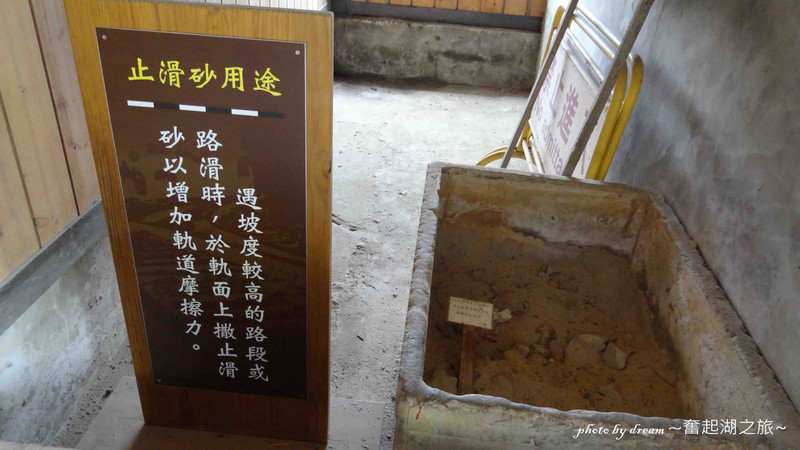 止滑砂用途
遇坡度較高的路段或
路滑時，於軌面上撒止滑
砂以增加軌道摩擦力。
進
photo by dream ~奮起湖之旅~